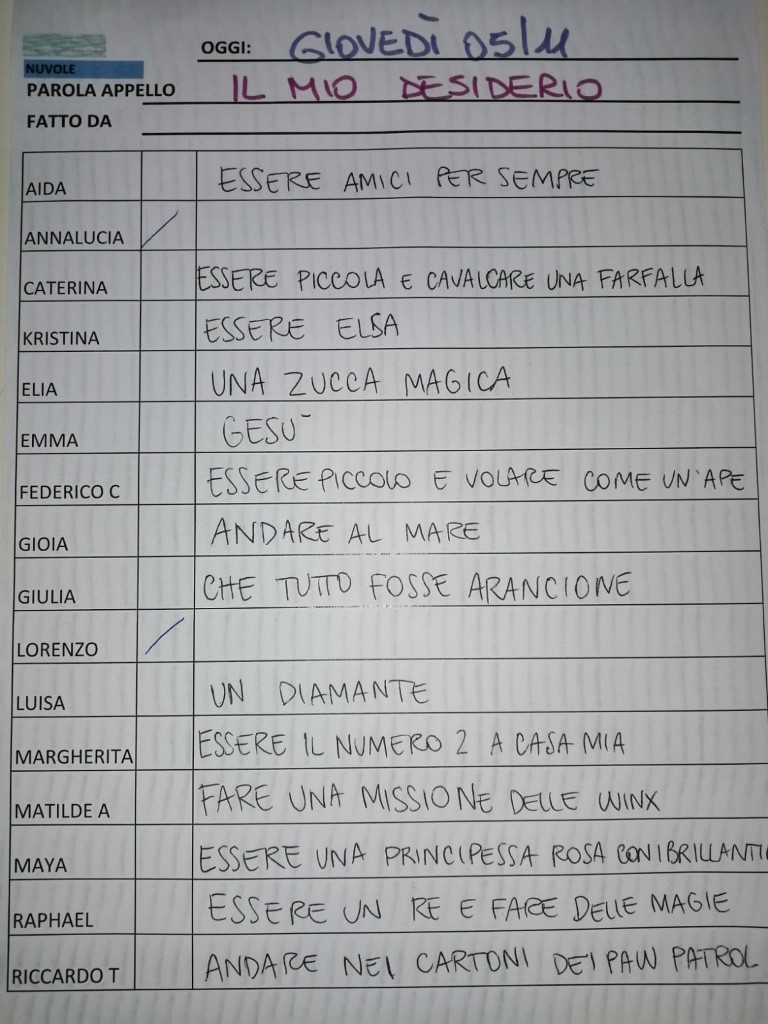 OGGI: GIOVEDÌ 05/11
NUVOLE
PAROLA APPELLO IL MIO DESIDERIO
FATTO DA
AIDA ESSERE AMICI PER SEMPRE
ANNALUCIA /
CATERINA ESSERE PICCOLA E CAVALCARE UNA FARFALLA
KRISTINA ESSERE ELSA
ELIA UNA ZUCCA MAGICA
EMMA GESÙ
FEDERICO C ESSERE PICCOLO E VOLARE COME UN'APE
GIOIA ANDARE AL MARE
GIULIA CHE TUTTO FOSSE ARANCIONE
LORENZO /
LUISA UN DIAMANTE
MARGHERITA ESSERE IL NUMERO 2 A CASA MIA
MATILDE A FARE UNA MISSIONE DELLE WINX
MAYA ESSERE UNA PRINCIPESSA ROSA CON I BRILLANTI
RAPHAEL ESSERE UN RE E FARE DELLE MAGIE
RICCARDO T ANDARE NEI CARTONI DEI PAW PATROL